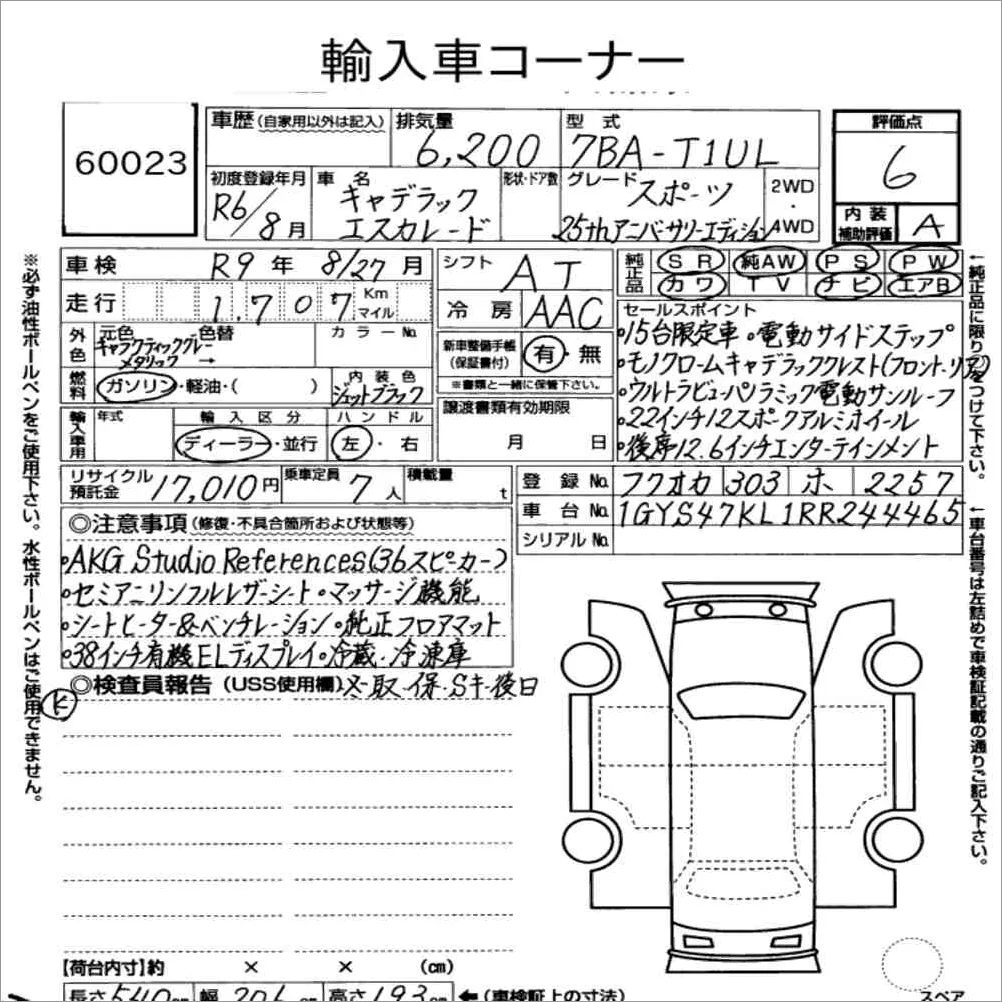 輸入車コーナー
60023
車歴 (自家用以外は記入)
排気量
6,200
型式
7BA-T1UL
評価点
6
内装補助評価
A
初度登録年月
R6/8月
車名
キャデラック
エスカレード
形状・ドア数
グレード
スポーツ
25thアニバーサリーエディション
2WD
・
4WD
車検 R9年 8/27月
走行 1,707 Km マイル
シフト AT
冷房 AAC
純正品
SR 純AW PS PW
カワ TV ナビ エアB
外色
元色 色替 カラーNo.
ギャラクティックグレー
メタリック →
燃料
ガソリン・軽油・( )
内装色
ジェットブラック
新車整備手帳
(保証書付)
有・無
※書類と一緒に保管下さい。
セールスポイント
・15台限定車・電動サイドステップ
・モノクロームキャデラッククレスト(フロント・リア)
・ウルトラビューパノラミック電動サンルーフ
・22インチ12スポークアルミホイール
・後席12.6インチエンターテインメント
輸入車用
年式
輸入区分
ディーラー・並行
ハンドル
左・右
譲渡書類有効期限
月 日
リサイクル預託金 17,010円
乗車定員 7人
積載量 t
登録No. フクオカ 303 ホ 2257
車台No. 1GYS47KL1RR244465
シリアルNo.
◎注意事項 (修復・不具合箇所および状態等)
・AKG Studio References(36スピーカー)
・セミアニリンフルレザーシート・マッサージ機能
・シートヒーター&ベンチレーション・純正フロアマット
・38インチ有機ELディスプレイ・冷蔵・冷凍庫
◎検査員報告 (USS使用欄) 冬・取・保・Sキー後日
【荷台内寸】約 × × (cm)
長さ 540cm 幅 206cm 高さ 193cm ←(車検証上の寸法)
スペア
※必ず油性ボールペンをご使用下さい。水性ボールペンはご使用できません。
↑純正品に限り○をつけて下さい。
↑車台番号は左詰めで車検証記載の通りご記入下さい。